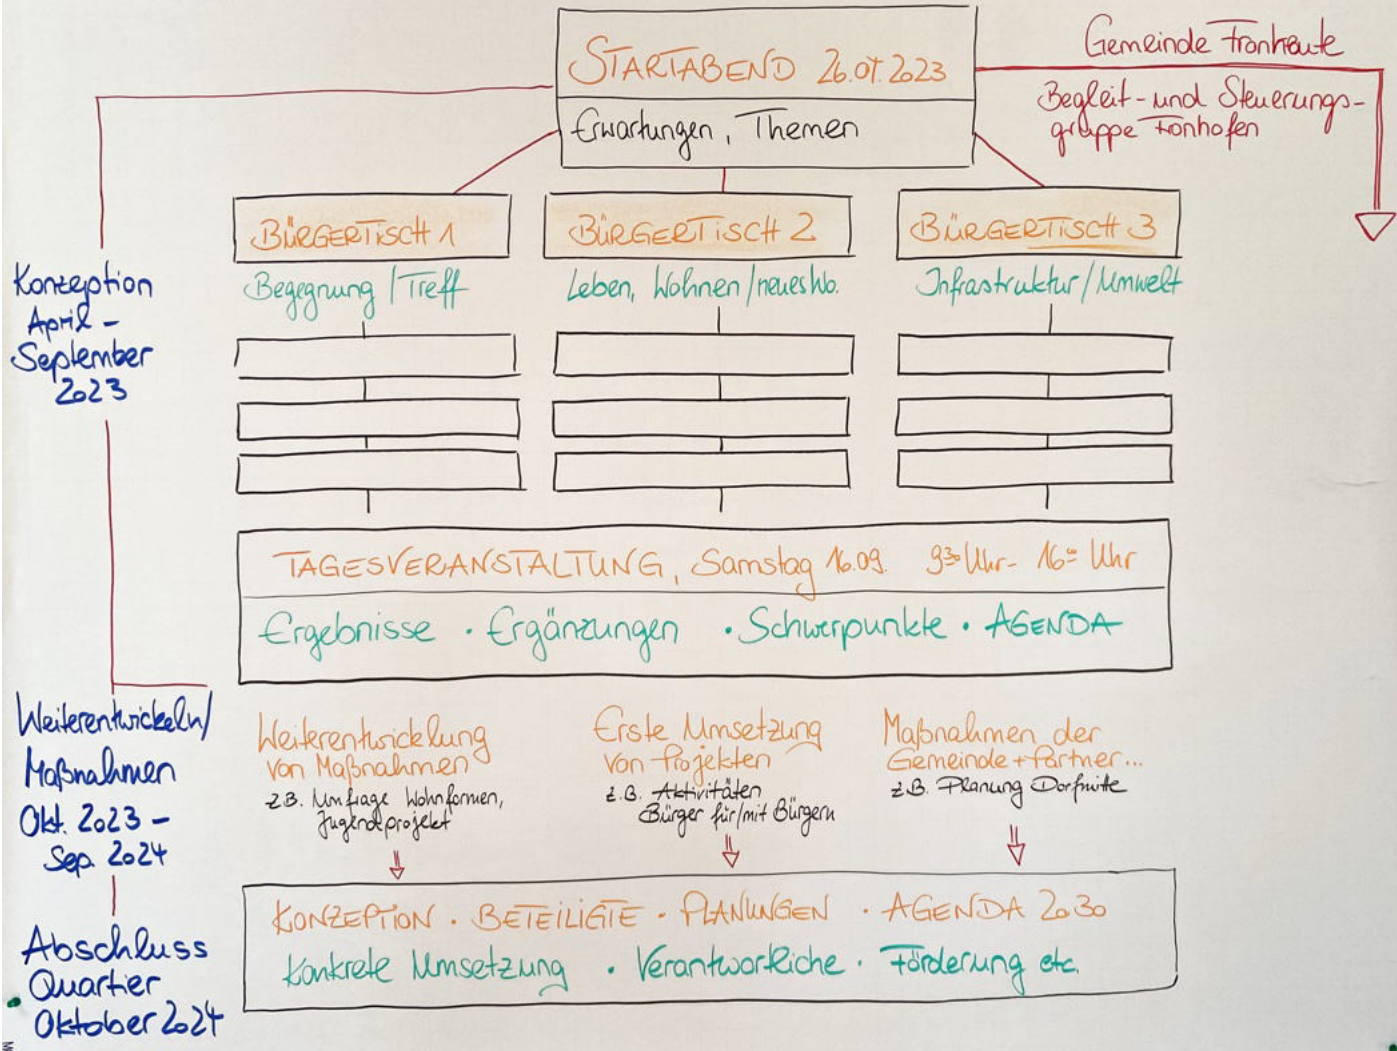 STARTABEND 26.07.2023
Erwartungen, Themen
Gemeinde Fronreute
Begleit- und Steuerungs-
gruppe Fronhofen
BÜRGERTISCH 1
BÜRGERTISCH 2
BÜRGERTISCH 3
Begegnung / Treff
Leben, Wohnen / neues Wo.
Infrastruktur / Umwelt
Konzeption
April -
September
2023
TAGESVERANSTALTUNG, Samstag 16.09. 9 30 Uhr - 16 00 Uhr
Ergebnisse · Ergänzungen · Schwerpunkte · AGENDA
Weiterentwickeln/
Maßnahmen
Okt. 2023 -
Sep. 2024
Weiterentwicklung
von Maßnahmen
z.B. Umfrage Wohnformen,
Jugendprojekt
Erste Umsetzung
von Projekten
z.B. Aktivitäten
Bürger für/mit Bürgern
Maßnahmen der
Gemeinde + Partner...
z.B. Planung Dorfmitte
KONZEPTION · BETEILIGTE · PLANUNGEN · AGENDA 2030
Konkrete Umsetzung · Verantwortliche · Förderung etc.
Abschluss
Quartier
Oktober 2024